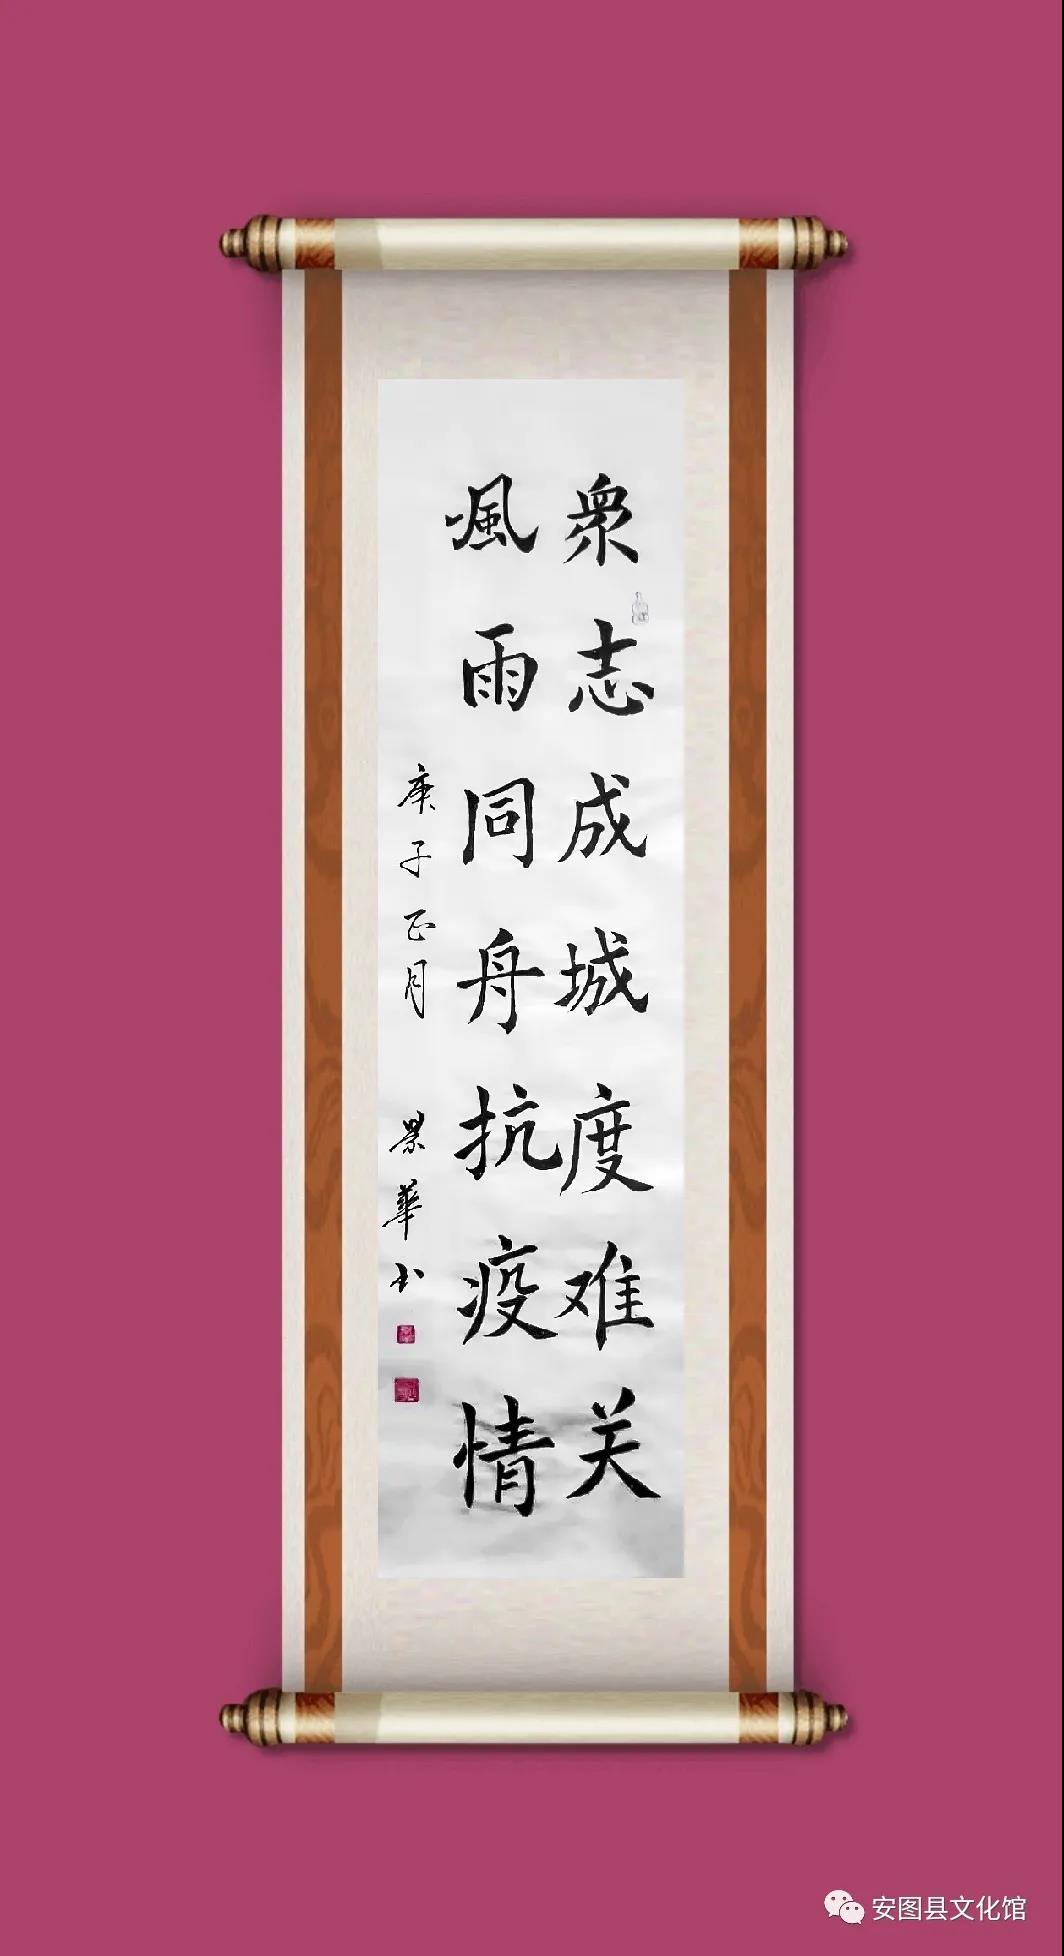 衆志成城度难关
風雨同舟抗疫情
庚子正月
景華书
安图县文化馆